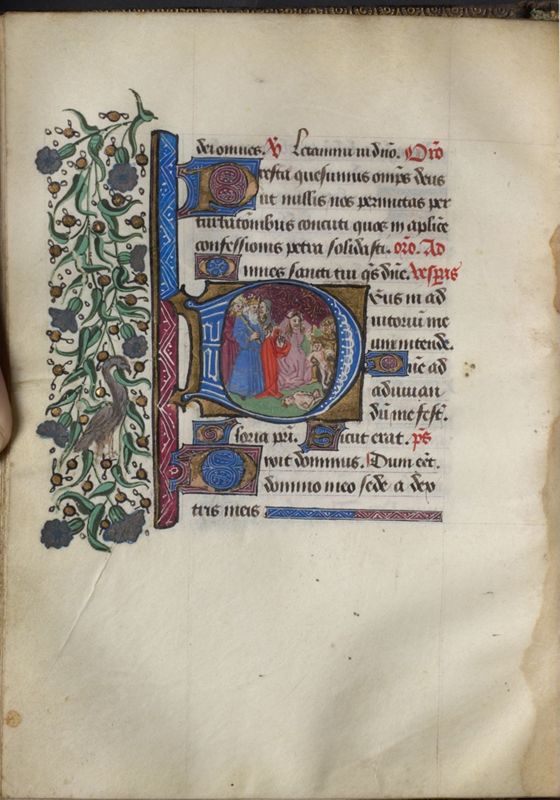 dei omnes. V Letamini in dno. Oro
Presta quesumus omps deus
ut nullis nos permittas per
turbationibus concuti quos in aplice
confessionis petra solidasti. oro. Ad
Omnes sancti tui qs dne. vespris
Deus in ad
iutorium me
um intende.
Dne ad
adiuuan
dum me fest.
Gloria pri. Sicut erat. ps
Dixit dominus. Dum eet.
domino meo sede a dex
tris meis